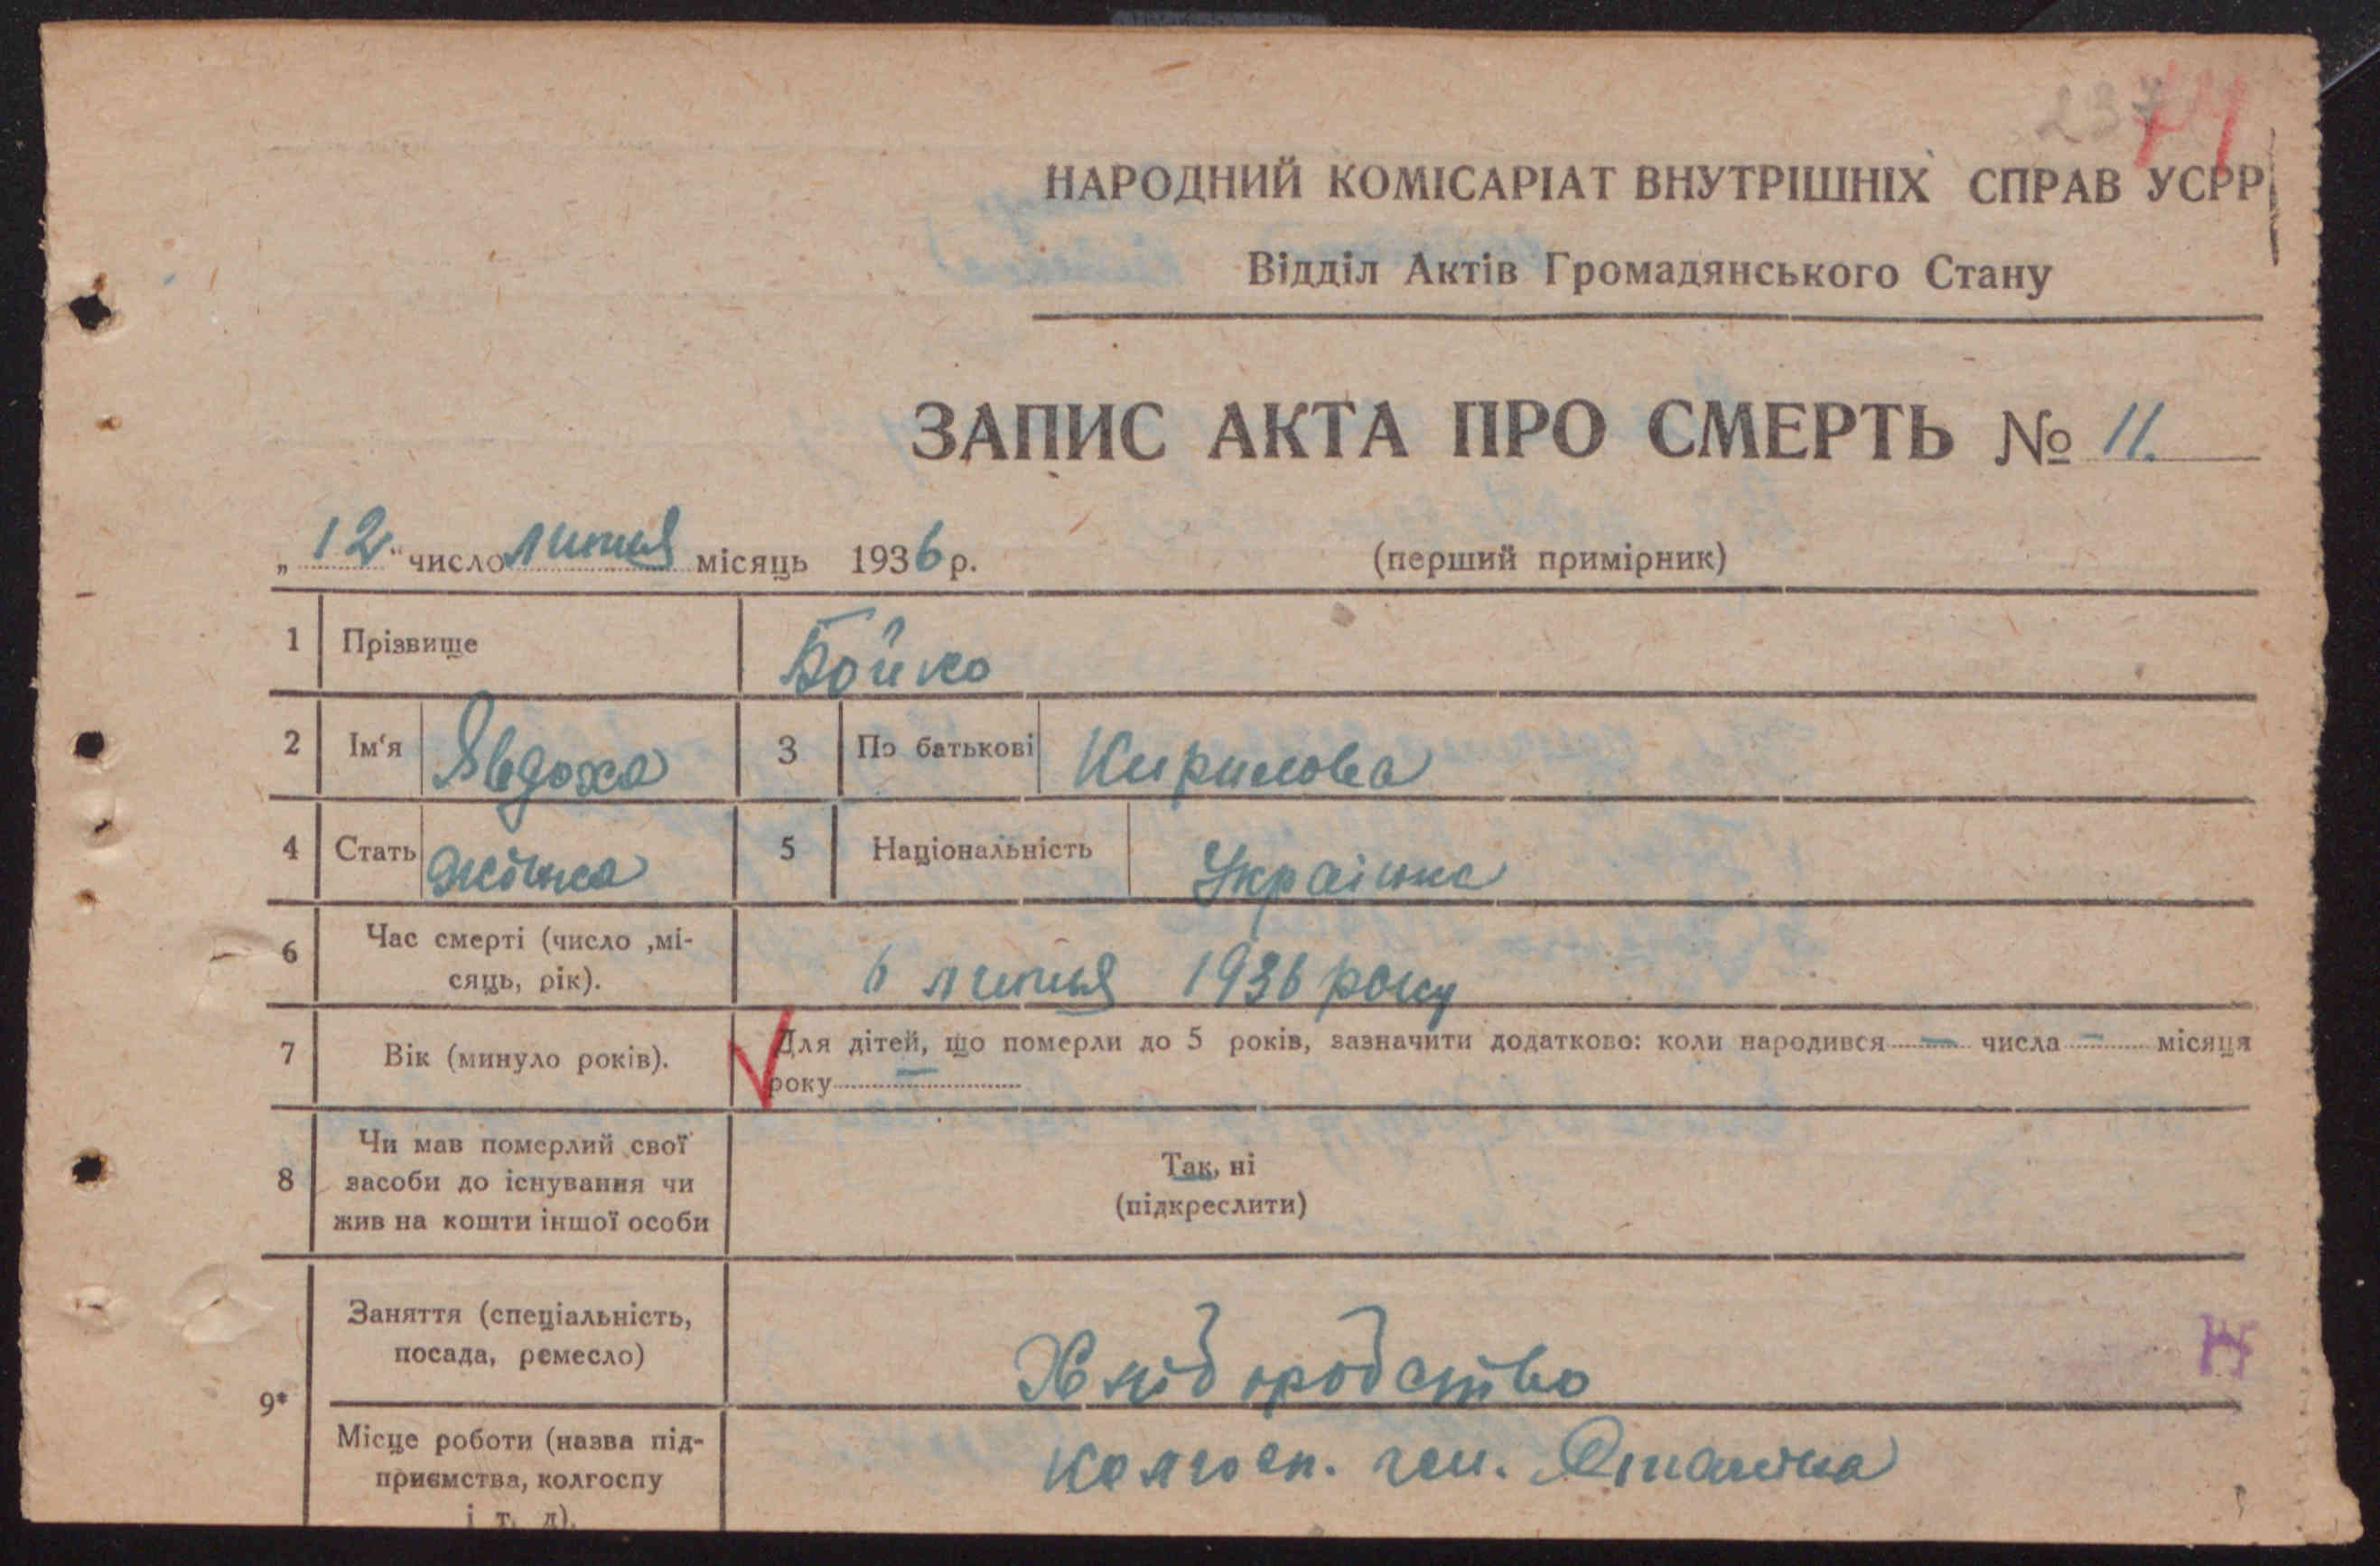 237
74
НАРОДНИЙ КОМІСАРІАТ ВНУТРІШНІХ СПРАВ УСРР
Відділ Актів Громадянського Стану
ЗАПИС АКТА ПРО СМЕРТЬ № 11.
„12“ число липня місяць 1936 р. (перший примірник)
1 Прізвище Бойко
2 Ім‘я Явдоха 3 По батькові Кирилова
4 Стать жінка 5 Національність Українка
6 Час смерті (число ,мі-
сяць, рік). 6 липня 1936 року
7 Вік (минуло років). Для дітей, що померли до 5 років, зазначити додатково: коли народився — числа — місяця
року —
8 Чи мав померлий свої
засоби до існування чи
жив на кошти іншої особи
Так, ні
(підкреслити)
9* Заняття (спеціальність,
посада, ремесло)
Хлібородство
Місце роботи (назва під-
приємства, колгоспу
і т. д).
колгосп. ген. Сталіна
Н